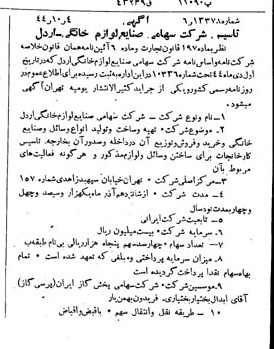 ۴۳۷۳۹ف ب۱۱۰۹۰
شماره۱۳۳۷۸ر۱ آگهی ۴ر۱۰ر۴۴
تاسیس شرکت سهامی صنایع لوازم خانگی-اردل
نظربماده۱۹۷ قانون تجارت وماده۶ آئین نامه همان قانون خلاصه
شرکت نامه واساس نامه شرکت سهامی صنایع لوازم خانگی اردل که درتاریخ
اول دی ماه۴۴ تحت شماره۱۰۳۳۶ در این اداره به ثبت رسیده برای اطلاع عموم در
روزنامه رسمی کشور ویکی از جراید کثیرالانتشار یومیه تهران آگهی
میشود.
۱-نام ونوع شرکت- شرکت سهامی صنایع لوازم خانگی اردل
۲-موضوع شرکت* تهیه وساخت وتولید انواع وسائل وصنایع
خانگی وخرید وفروش وتوزیع آن درداخله وصدور آن بخارجه. تاسیس
کارخانجات برای ساختن وسائل ولوازم مذکور و هرگونه فعالیت های
مربوط بآن
۳-مرکز اصلی شرکت* تهران خیابان سپهبد زاهدی شماره ۱۵۷
۴- مدت شرکت* از شانزدهم آذر ماه یکهزار وسیصد وچهل
وچهار بمدت نود سال
۵- تابعیت شرکت ایرانی
۶- سرمایه شرکت* بیست میلیون ریال
۷- تعداد سهام* چهارصد سهم پنجاه هزار ریالی بی نام طبقه ب
۸- میزان سرمایه پرداختی ومبلغی که تعهد شده است* تمام
بهاء سهام نقدا پرداخت گردیده است
۹-موسسین شرکت* شرکت سهامی پخش گاز ایران (پرسی گاز)
آقای ابدال بختیار بختیاری. فریدون بهمن یار
۱۰- طریقه نقل وانتقال سهم* باقبض واقباض